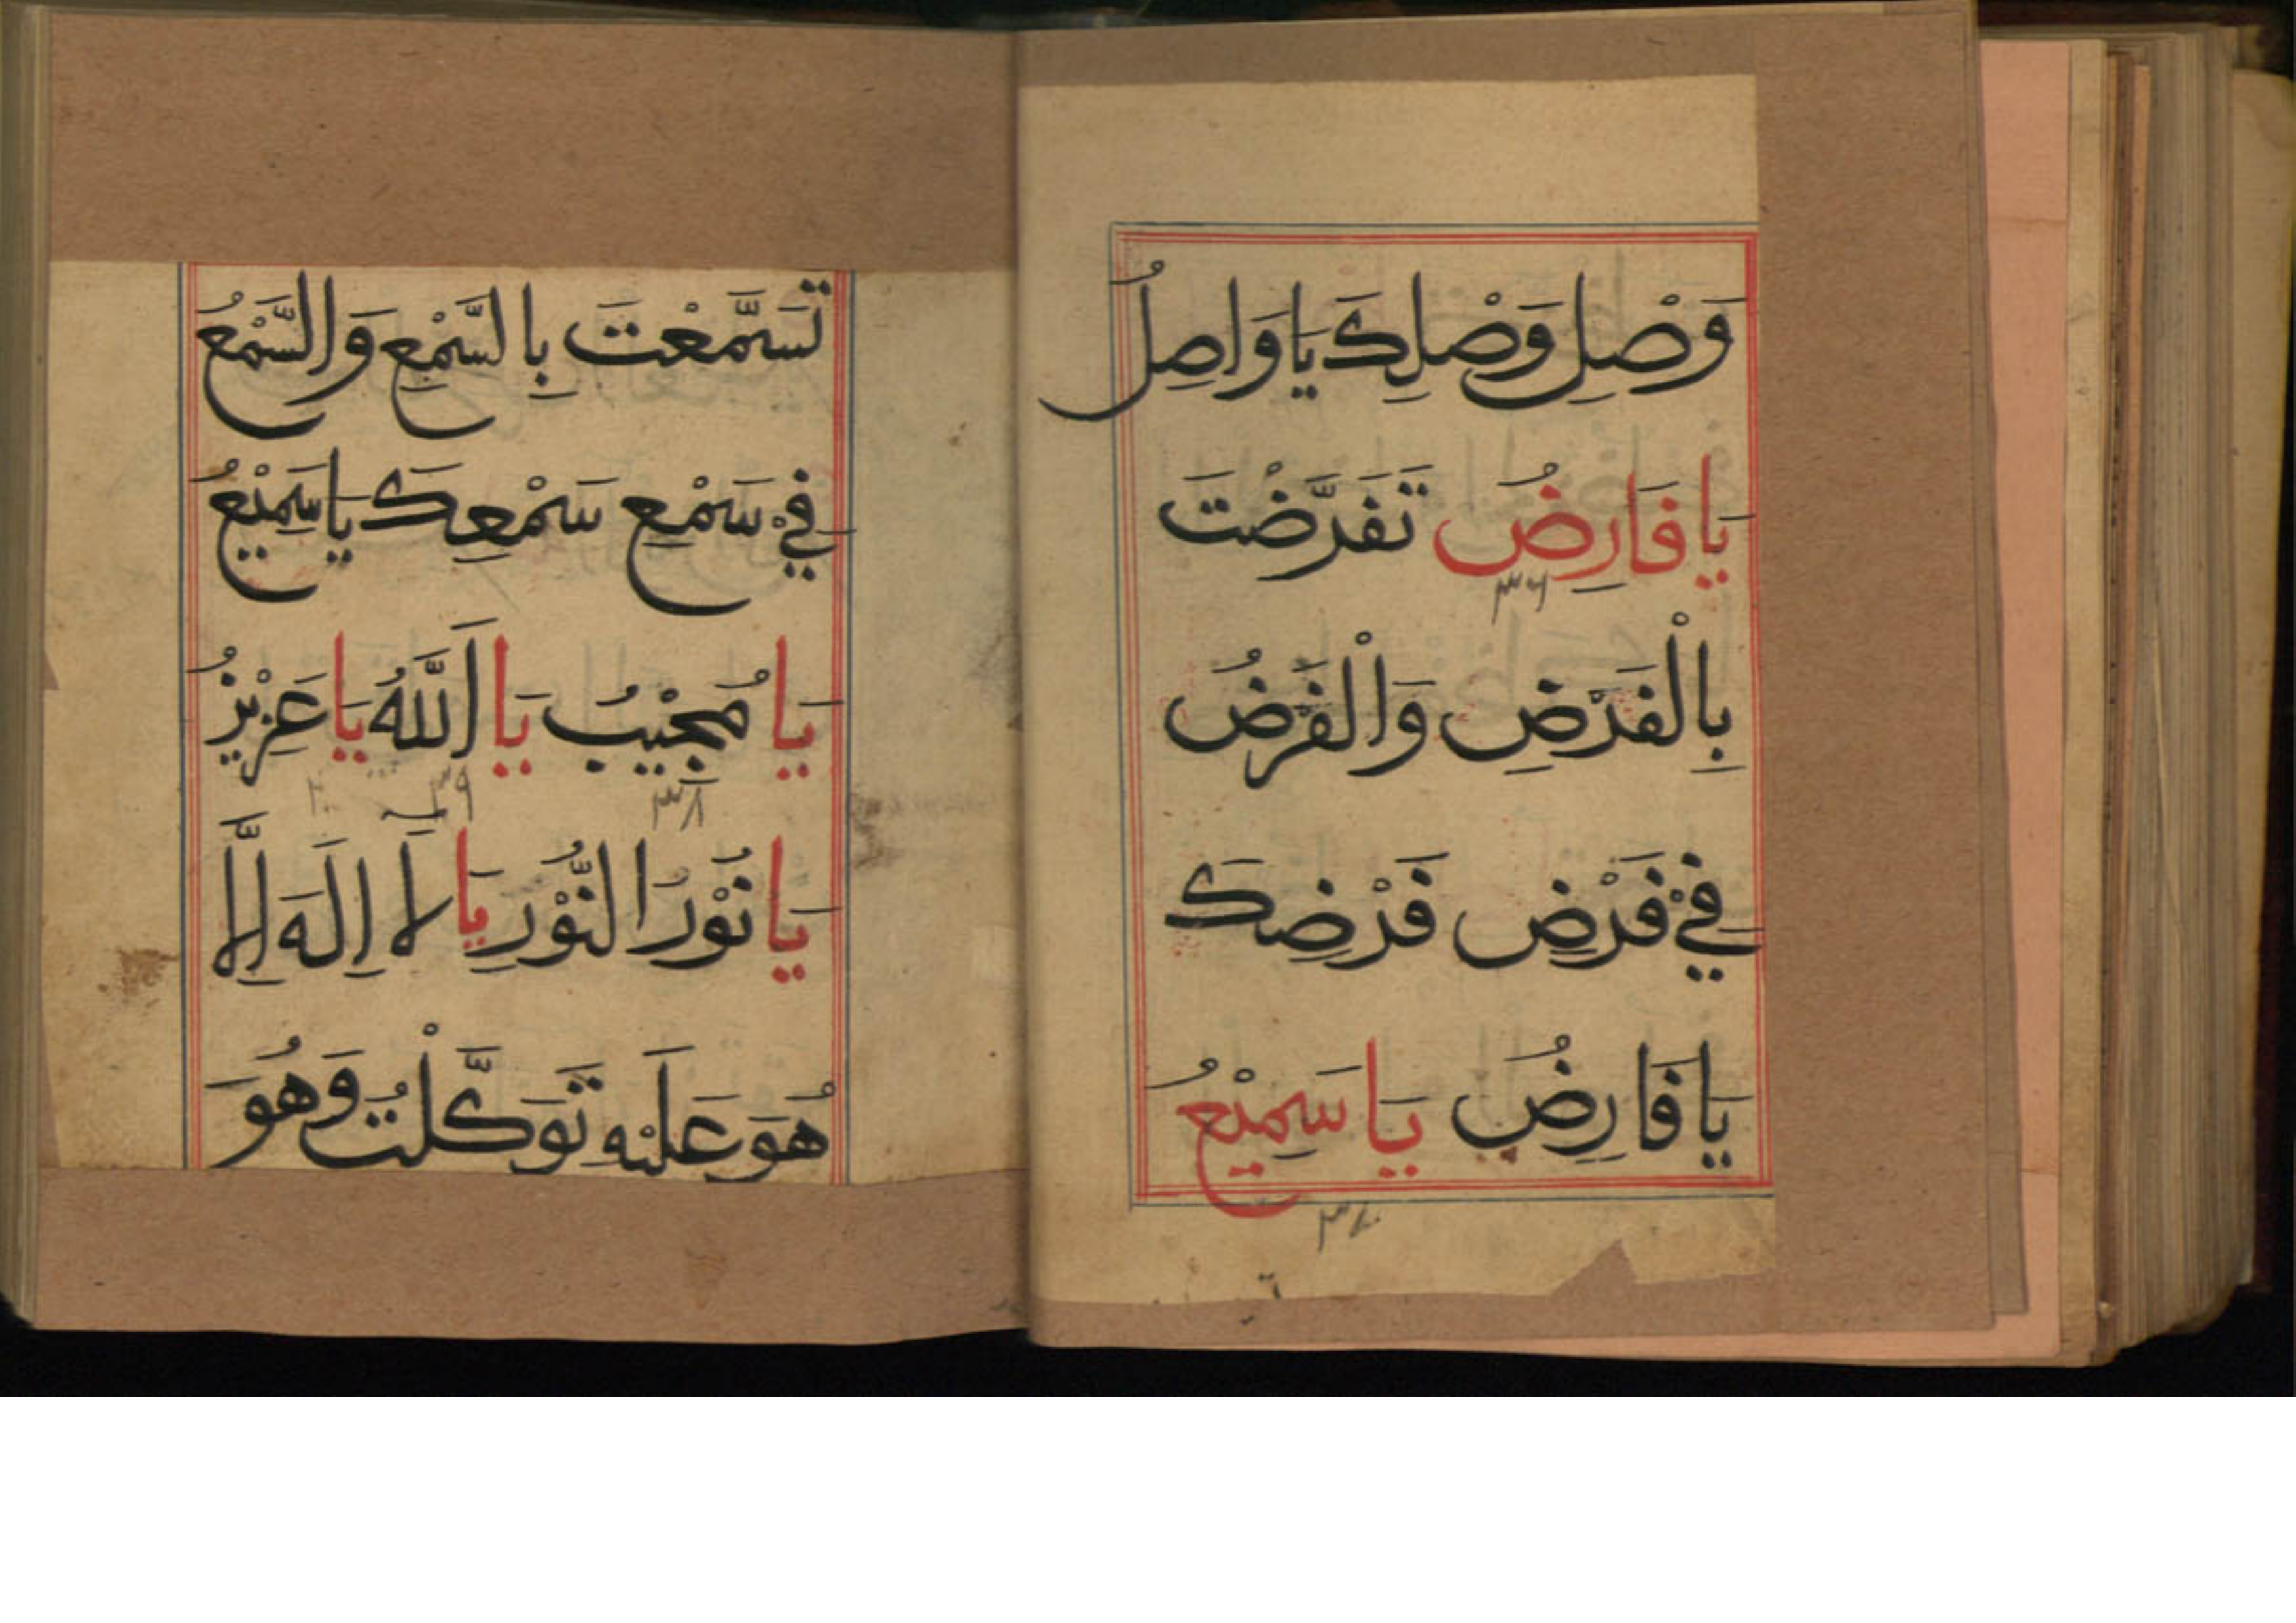 وَصْلِ وَصْلِكَ يَا وَاصِلُ
يَا فَارِضُ تَفَرَّضْتَ
٣٦
بِالْفَرْضِ وَالْفَرْضُ
فِيْ فَرْضِ فَرْضِكَ
يَا فَارِضُ يَا سَمِيْعُ
٣٧
تَسَمَّعْتَ بِالسَّمْعِ وَالسَّمْعُ
فِيْ سَمْعِ سَمْعِكَ يَا سَمِيْعُ
يَا مُجِيْبُ يَا اَللّٰهُ يَا عَزِيْزُ
٣٨ ٣٩
يَا نُوْرَ النُّوْرِ يَا لَا اِلٰهَ اِلَّا
هُوَ عَلَيْهِ تَوَكَّلْتُ وَهُوَ